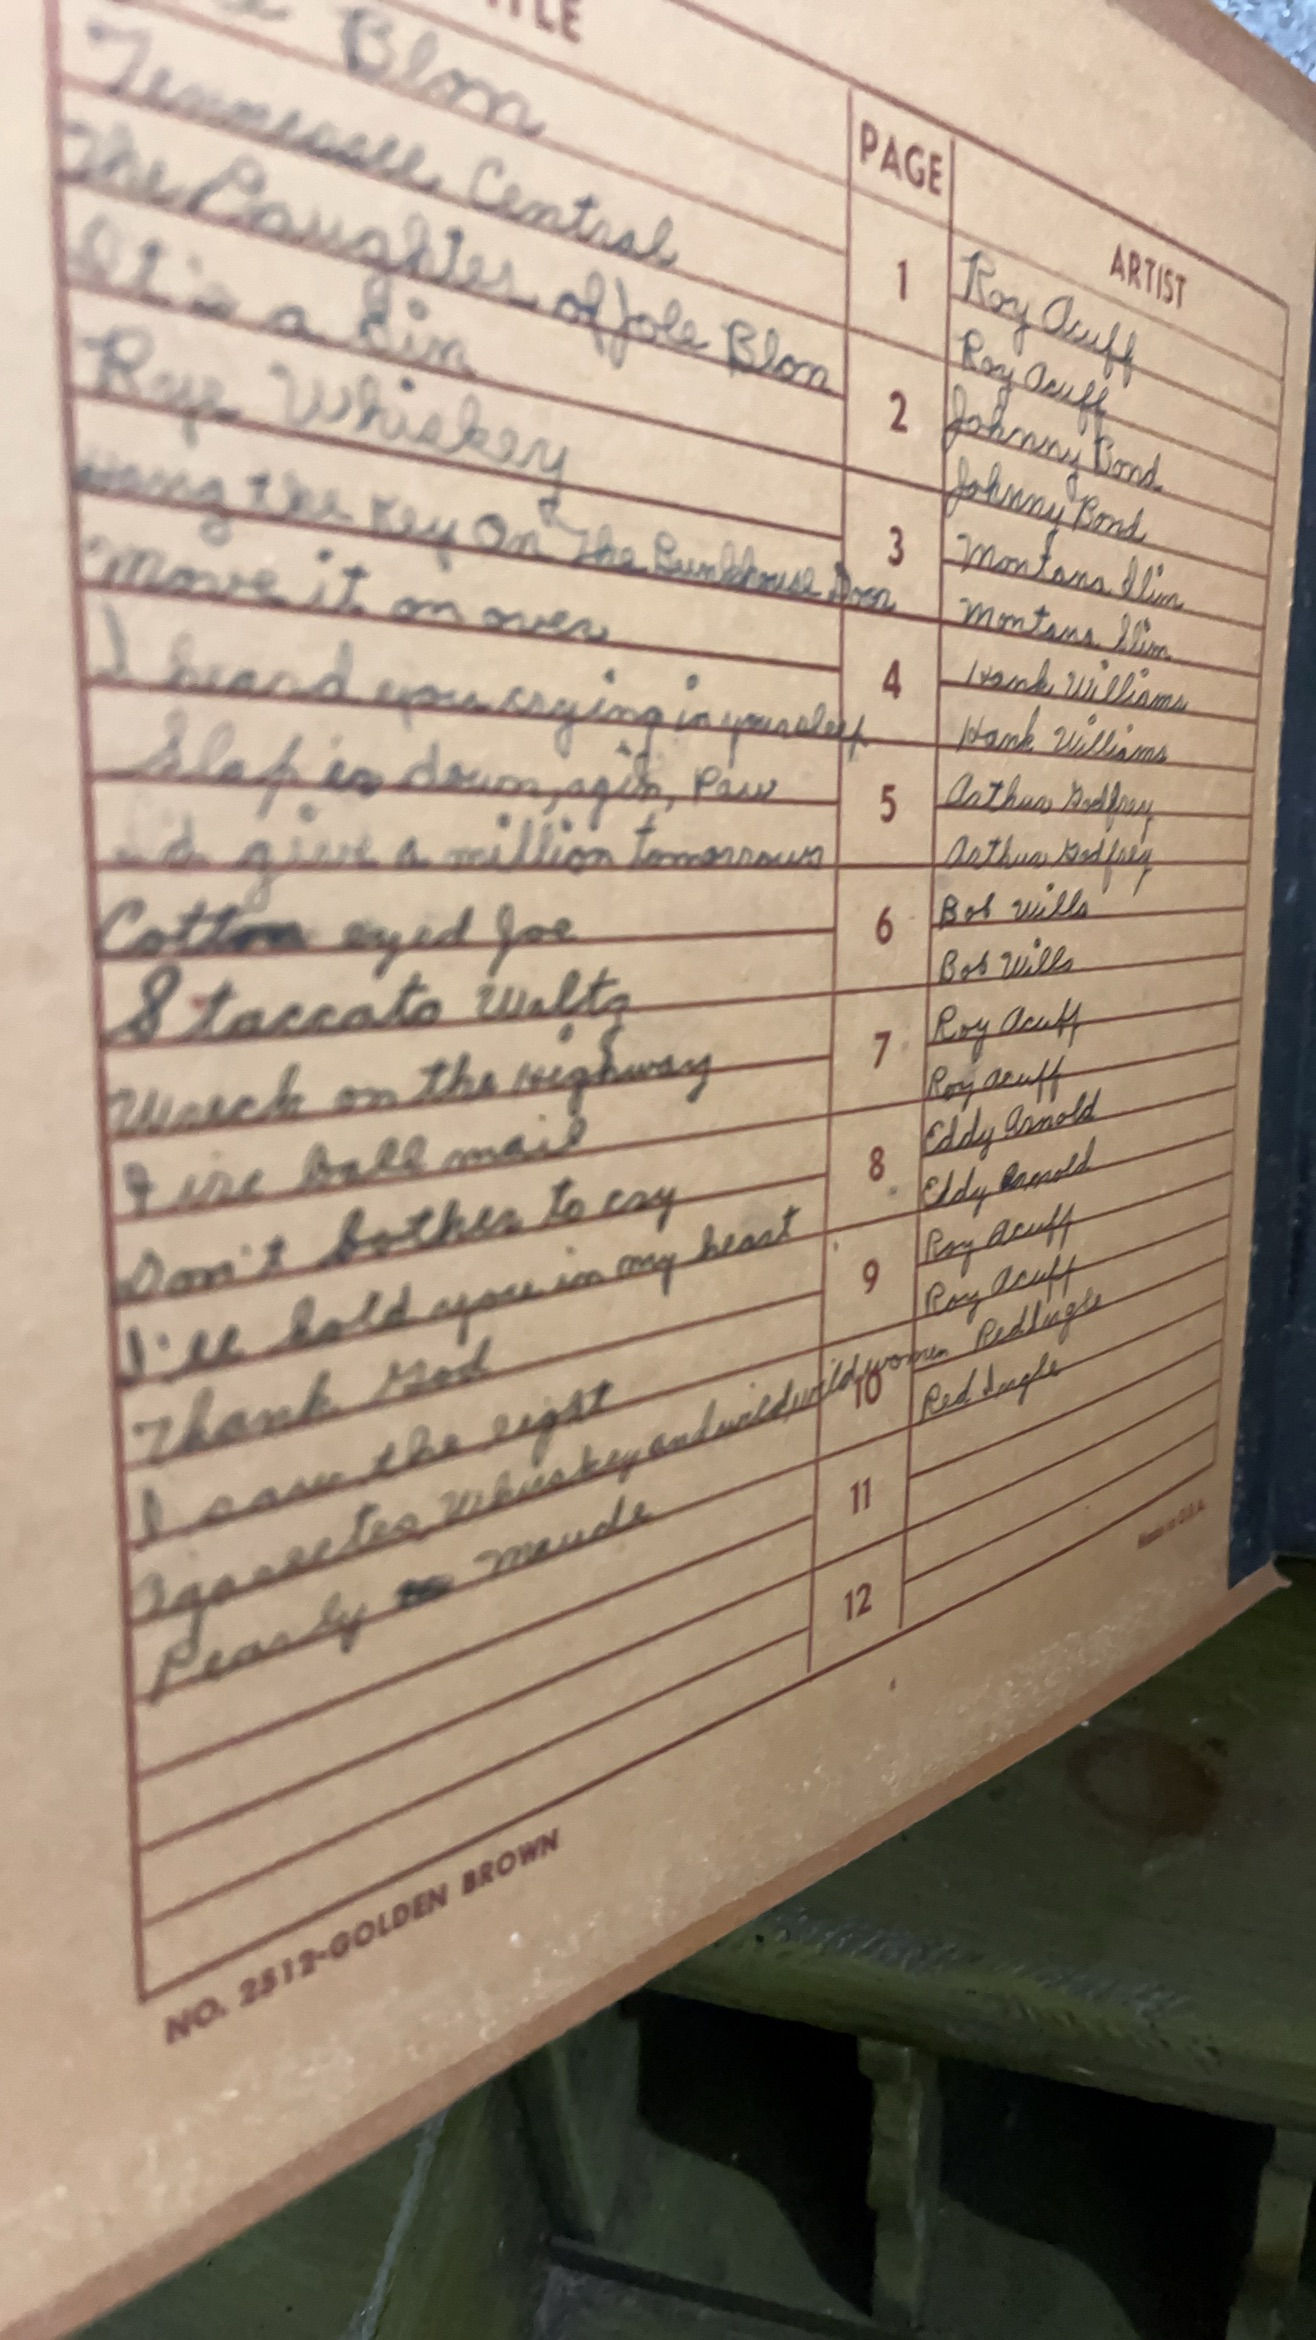 TITLE PAGE ARTIST
Blon 1 Roy Acuff
Tennessee Central Roy Acuff
The Daughter of Jole Blon 2 Johnny Bond
It's a Sin Johnny Bond
Rye Whiskey 3 Montana Slim
Hang the Key On The Bunkhouse Door Montana Slim
Move it on over 4 Hank Williams
I heard you crying in your sleep Hank Williams
Slap er down, agin, Paw 5 Arthur Godfrey
I'd give a million tomorrows Arthur Godfrey
Cotton eyed Joe 6 Bob Wills
Staccato Waltz Bob Wills
Wreck on the Highway 7 Roy Acuff
Fire ball mail Roy Acuff
Don't bother to cry 8 Eddy Arnold
I'll hold you in my heart Eddy Arnold
Thank God 9 Roy Acuff
I saw the light Roy Acuff
Whuskey and wild, wild women 10 Red Ingle
Pearly Maude Red Ingle
11
12
NO. 2512-GOLDEN BROWN Made in U.S.A.